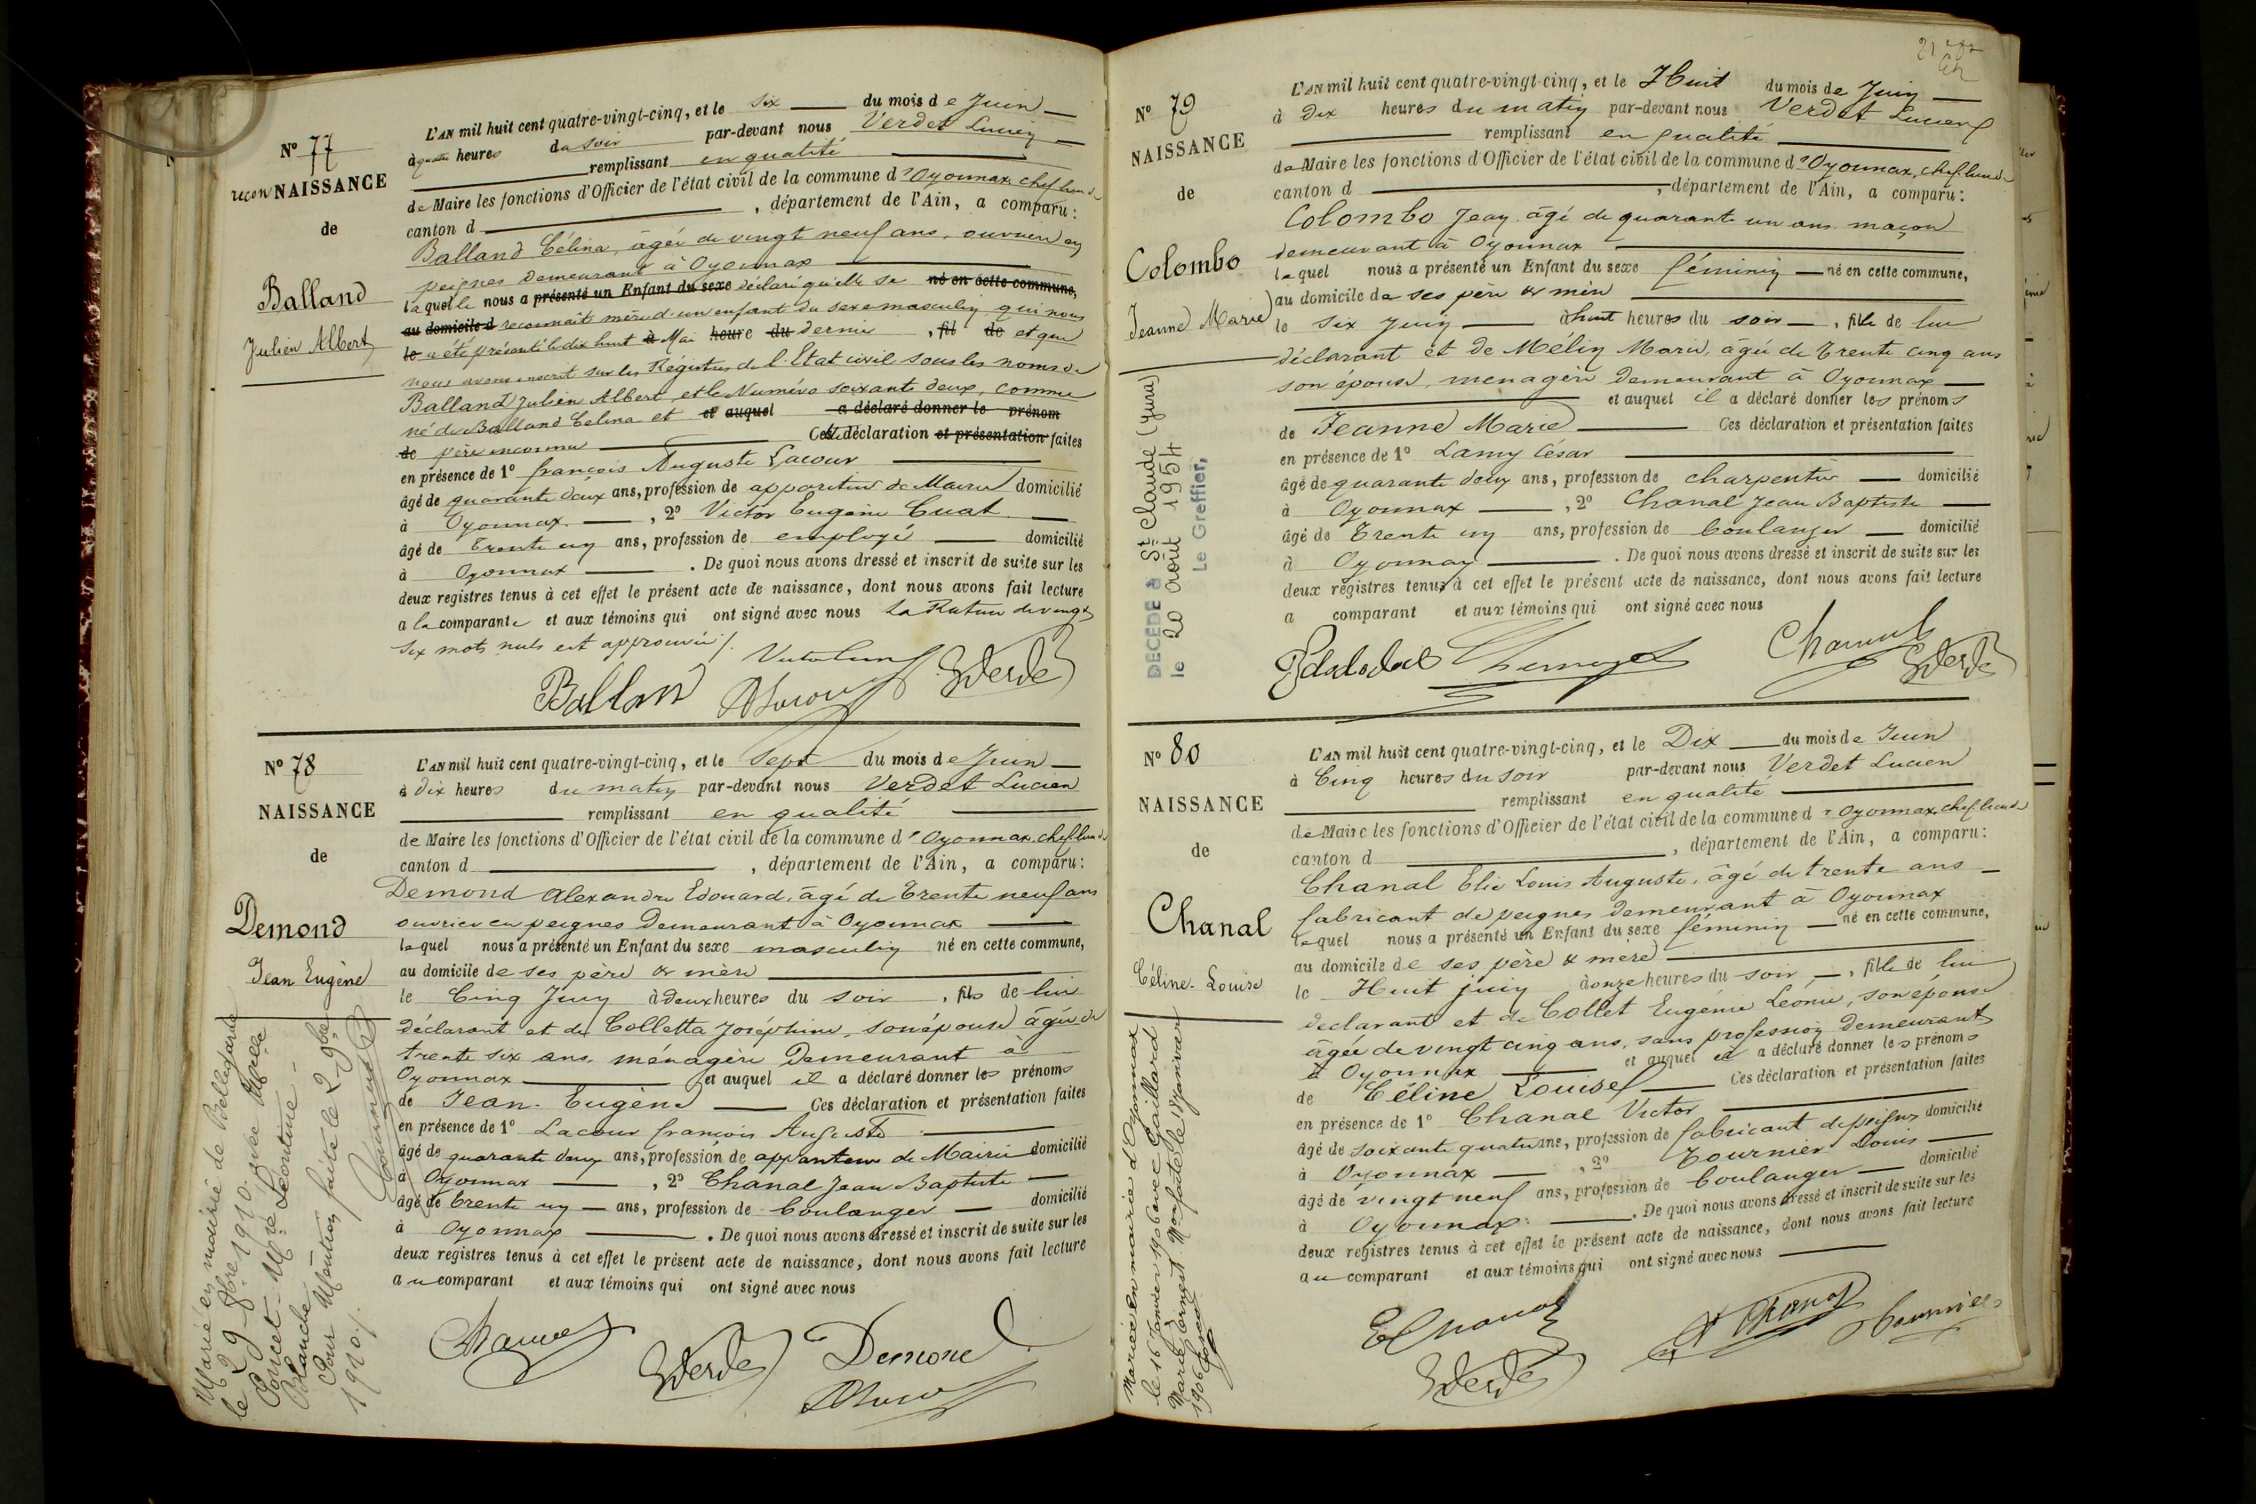 N° 77
recon NAISSANCE
de
Balland
Julien Albert
L'AN mil huit cent quatre-vingt-cinq, et le six du mois de Juin
à quatre heures du soir par-devant nous Verdet Lucien
remplissant en qualité
de Maire les fonctions d'Officier de l'état civil de la commune d'Oyonnax, chef lieu de
canton d , département de l'Ain, a comparu:
Balland Célina, âgée de vingt neuf ans, ouvrière en
peignes demeurant à Oyonnax
laquelle nous a présenté un Enfant du sexe déclaré qu'elle se né en cette commune,
au domicile d reconnaît mère d'un enfant du sexe masculin qui nous
le a été présenté le dix huit à Mai heure du dernier , fil de et que
nous avons inscrit sur les Régistres de l'Etat civil sous les noms de
Balland Julien Albert, et le Numéro soixante deux, comme
né de Balland Célina et et auquel a déclaré donner le prénom
de père inconnu Cette déclaration et présentation faites
en présence de 1° françois Auguste Lacour
âgé de quarante deux ans, profession de appariteur de Mairie domicilié
à Oyonnax , 2° Victor Eugène Cuat
âgé de Trente un ans, profession de employé domicilié
à Oyonnax . De quoi nous avons dressé et inscrit de suite sur les
deux registres tenus à cet effet le présent acte de naissance, dont nous avons fait lecture
a la comparante et aux témoins qui ont signé avec nous La Rature de vingt
six mots nuls est approuvée /.
Balland
N° 78
NAISSANCE
de
Demond
Jean Eugène
L'AN mil huit cent quatre-vingt-cinq, et le Sept du mois de Juin
à dix heures du matin par-devant nous Verdet Lucien
remplissant en qualité
de Maire les fonctions d'Officier de l'état civil de la commune d'Oyonnax, chef lieu de
canton d , département de l'Ain, a comparu:
Demond Alexandre Edouard, âgé de Trente neuf ans
ouvrier en peignes demeurant à Oyonnax
lequel nous a présenté un Enfant du sexe masculin né en cette commune,
au domicile de ses père & mère
le Cinq Juin à deux heures du soir , fils de lui
déclarant et de Colletta Joséphine, son épouse âgée de
trente six ans, ménagère Demeurant à
Oyonnax et auquel il a déclaré donner les prénoms
de Jean-Eugène Ces déclaration et présentation faites
en présence de 1° Lacour françois Auguste
âgé de quarante deux ans, profession de appariteur de Mairie domicilié
à Oyonnax , 2° Chanal Jean Baptiste
âgé de Trente un ans, profession de boulanger domicilié
à Oyonnax . De quoi nous avons dressé et inscrit de suite sur les
deux registres tenus à cet effet le présent acte de naissance, dont nous avons fait lecture
au comparant et aux témoins qui ont signé avec nous
Demond
Marié en mairie de Bellegarde
le 29 8bre 1910, avec Melle
Poncet Marie Léontine
Blanche
Pour Mention faite le 2 9bre
1910 /.
N° 79
NAISSANCE
de
Colombo
Jeanne Marie
L'AN mil huit cent quatre-vingt-cinq, et le Huit du mois de Juin
à dix heures du matin par-devant nous Verdet Lucien
remplissant en qualité
de Maire les fonctions d'Officier de l'état civil de la commune d'Oyonnax, chef lieu de
canton d , département de l'Ain, a comparu:
Colombo Jean âgé de quarante un ans maçon
demeurant à Oyonnax
lequel nous a présenté un Enfant du sexe féminin né en cette commune,
au domicile de ses père & mère
le six Juin à huit heures du soir , fille de lui
déclarant et de Mélin Marie, âgée de Trente cinq ans
son épouse, menagère demeurant à Oyonnax
et auquel il a déclaré donner les prénoms
de Jeanne Marie Ces déclaration et présentation faites
en présence de 1° Lamy César
âgé de quarante deux ans, profession de charpentier domicilié
à Oyonnax , 2° Chanal Jean Baptiste
âgé de Trente un ans, profession de boulanger domicilié
à Oyonnax . De quoi nous avons dressé et inscrit de suite sur les
deux registres tenus à cet effet le présent acte de naissance, dont nous avons fait lecture
a comparant et aux témoins qui ont signé avec nous
DECEDE à St Claude (Jura)
le 20 août 1954
Le Greffier,
N° 80
NAISSANCE
de
Chanal
Céline-Louise
L'AN mil huit cent quatre-vingt-cinq, et le Dix du mois de Juin
à Cinq heures du soir par-devant nous Verdet Lucien
remplissant en qualité
de Maire les fonctions d'Officier de l'état civil de la commune d'Oyonnax, chef lieu de
canton d , département de l'Ain, a comparu:
Chanal Elie Louis Auguste, âgé de trente ans
fabricant de peignes demeurant à Oyonnax
lequel nous a présenté un Enfant du sexe féminin né en cette commune,
au domicile de ses père & mère
le Huit juin à onze heures du soir , fille de lui
declarant et de Collet Eugénie Léonie, son épouse
âgée de vingt cinq ans, sans profession demeurant
à Oyonnax et auquel il a déclaré donner les prénoms
de Céline Louise Ces déclaration et présentation faites
en présence de 1° Chanal Victor
âgé de soixante quatre ans, profession de fabricant de peignes domicilié
à Oyonnax , 2° Tournier Louis
âgé de vingt neuf ans, profession de boulanger domicilié
à Oyonnax . De quoi nous avons dressé et inscrit de suite sur les
deux registres tenus à cet effet le présent acte de naissance, dont nous avons fait lecture
au comparant et aux témoins qui ont signé avec nous
Mariée en mairie d'Oyonnax
le 16 Janvier 1906 avec Gaillard
Marie Ernest Mon faite le 18 janvier
1906